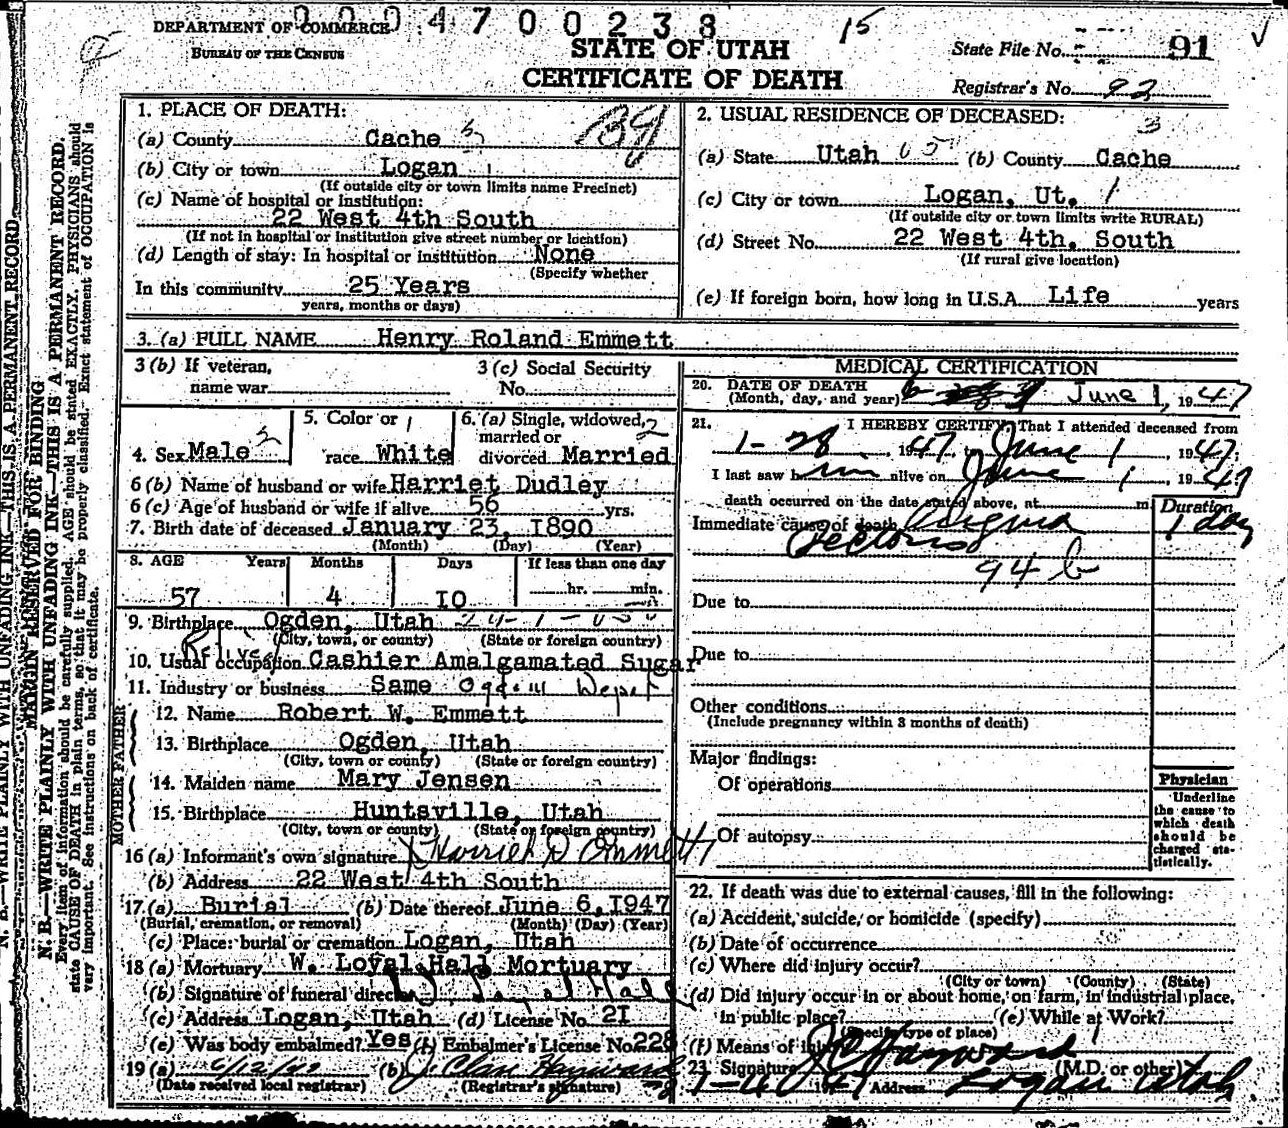 0004700238
15
DEPARTMENT OF COMMERCE
BUREAU OF THE CENSUS
STATE OF UTAH
CERTIFICATE OF DEATH
State File No. 91
Registrar's No. 92
N. B.—WRITE PLAINLY WITH UNFADING INK—THIS IS A PERMANENT RECORD.
MARGIN RESERVED FOR BINDING
N. B.—WRITE PLAINLY WITH UNFADING INK—THIS IS A PERMANENT RECORD.
Every item of information should be carefully supplied. AGE should be stated EXACTLY. PHYSICIANS should
state CAUSE OF DEATH in plain terms, so that it may be properly classified. Exact statement of OCCUPATION is
very important. See instructions on back of certificate.
1. PLACE OF DEATH:
(a) County Cache
(b) City or town Logan
(If outside city or town limits name Precinct)
(c) Name of hospital or institution:
22 West 4th South
(If not in hospital or institution give street number or location)
(d) Length of stay: In hospital or institution None
(Specify whether
In this community 25 Years
years, months or days)
2. USUAL RESIDENCE OF DECEASED:
3
(a) State Utah 05 (b) County Cache
(c) City or town Logan, Ut. 1
(If outside city or town limits write RURAL)
(d) Street No. 22 West 4th. South
(If rural give location)
(e) If foreign born, how long in U.S.A. Life years
3. (a) FULL NAME Henry Roland Emmett
3 (b) If veteran,
name war
3 (c) Social Security
No.
4. Sex Male
5. Color or
race White
6. (a) Single, widowed, 2
married or
divorced Married
6 (b) Name of husband or wife Harriet Dudley
6 (c) Age of husband or wife if alive 56 yrs.
7. Birth date of deceased January 23, I890
(Month) (Day) (Year)
8. AGE Years Months Days If less than one day
57 4 IO hr. min.
9. Birthplace Ogden, Utah
(City, town, or county) (State or foreign country)
10. Usual occupation Cashier Amalgamated Sugar
11. Industry or business Same Ogden
FATHER
12. Name Robert W. Emmett
13. Birthplace Ogden, Utah
(City, town or county) (State or foreign country)
MOTHER
14. Maiden name Mary Jensen
15. Birthplace Huntsville, Utah
(City, town or county) (State or foreign country)
16 (a) Informant's own signature Harriet D Emmett
(b) Address 22 West 4th South
17 (a) Burial (b) Date thereof June 6, I947
(Burial, cremation, or removal) (Month) (Day) (Year)
(c) Place: burial or cremation Logan, Utah
18 (a) Mortuary W. Loyal Hall Mortuary
(b) Signature of funeral director W. Loyal Hall
(c) Address Logan, Utah (d) License No. 2I
(e) Was body embalmed? Yes (f) Embalmer's License No. 228
19 (a) 6/12/47 (b) J. Clare Hayward
(Date received local registrar) (Registrar's signature)
MEDICAL CERTIFICATION
20. DATE OF DEATH
(Month, day, and year) June 1, 1947
21. I HEREBY CERTIFY, That I attended deceased from
1-28, 1947, June 1, 1947;
I last saw him alive on June 1, 1947
death occurred on the date stated above, at m.
Duration
Immediate cause of death Angina 1 day
Pectoris
94 b
Due to
Due to
Other conditions
(Include pregnancy within 3 months of death)
Major findings:
Of operations
Of autopsy
Physician
Underline
the cause to
which death
should be
charged sta-
tistically.
22. If death was due to external causes, fill in the following:
(a) Accident, suicide, or homicide (specify)
(b) Date of occurrence
(c) Where did injury occur?
(City or town) (County) (State)
(d) Did injury occur in or about home, on farm, in industrial place,
in public place? (e) While at Work?
(Specify type of place)
(f) Means of injury
23. Signature J C Hayward (M.D. or other)
Address Logan Utah